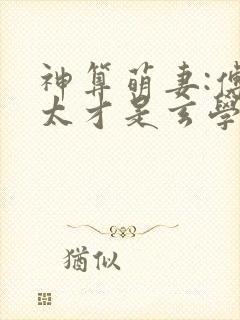 神算萌妻:傅
太才是玄學
猶似